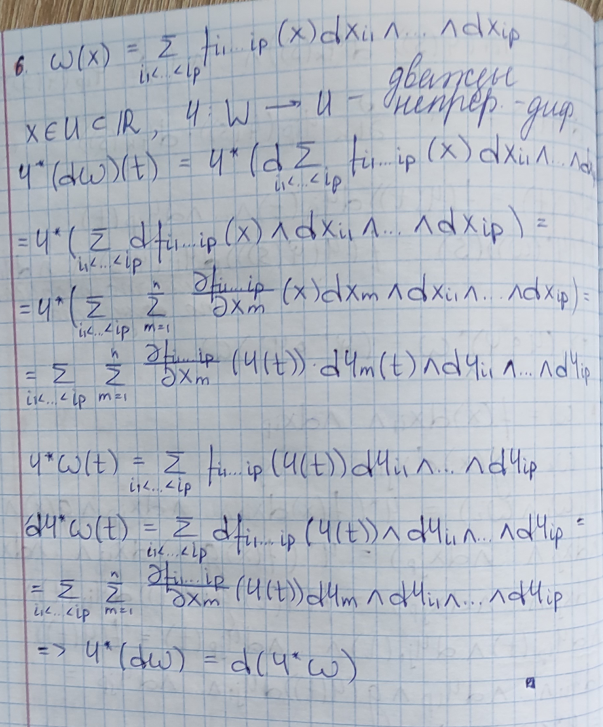 6. ω(x) = Σ_{i₁<...<ip} f_{i₁...ip}(x)dx_{i₁}∧...∧dx_{ip}
x∈U⊂ℝ, φ: W → U - дважды
непрер.-диф.
φ*(dω)(t) = φ*(d Σ_{i₁<...<ip} f_{i₁...ip}(x)dx_{i₁}∧...∧d
= φ*(Σ_{i₁<...<ip} df_{i₁...ip}(x)∧dx_{i₁}∧...∧dx_{ip}) =
= φ*(Σ_{i₁<...<ip} Σ_{m=1}^{n} ∂f_{i₁...ip}/∂x_m (x)dx_m∧dx_{i₁}∧...∧dx_{ip}) =
= Σ_{i₁<...<ip} Σ_{m=1}^{n} ∂f_{i₁...ip}/∂x_m (φ(t))·dφ_m(t)∧dφ_{i₁}∧...∧dφ_{ip}
φ*ω(t) = Σ_{i₁<...<ip} f_{i₁...ip}(φ(t))dφ_{i₁}∧...∧dφ_{ip}
dφ*ω(t) = Σ_{i₁<...<ip} df_{i₁...ip}(φ(t))∧dφ_{i₁}∧...∧dφ_{ip} =
= Σ_{i₁<...<ip} Σ_{m=1}^{n} ∂f_{i₁...ip}/∂x_m (φ(t))dφ_m∧dφ_{i₁}∧...∧dφ_{ip}
=> φ*(dω) = d(φ*ω)